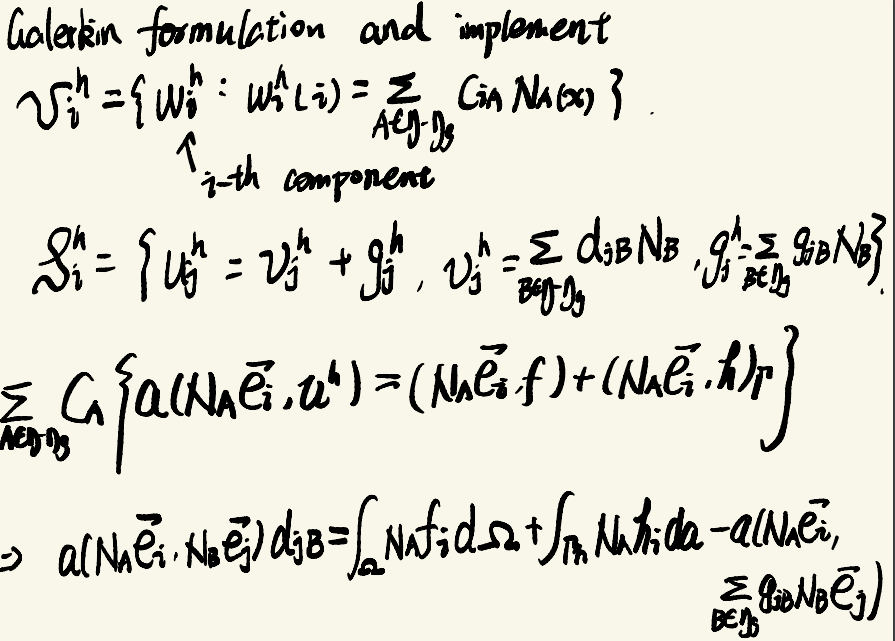 Galerkin formulation and implement
𝒱ᵢʰ = { wᵢʰ : wᵢʰ(i) = Σ_{A∈η-η_g} C_{iA} N_A(x) }
↑ i-th component
𝒮ᵢʰ = { uⱼʰ = vⱼʰ + gⱼʰ, vⱼʰ = Σ_{B∈η-η_g} d_{jB} N_B, gⱼʰ = Σ_{B∈η_g} g_{jB} N_B }.
Σ_{A∈η-η_g} C_A { a(N_A e⃗ᵢ, uʰ) = (N_A e⃗ᵢ, f) + (N_A e⃗ᵢ, h)_Γ }
⇒ a(N_A e⃗ᵢ, N_B e⃗ⱼ) d_{jB} = ∫_Ω N_A fᵢ dΩ + ∫_{Γh} N_A hᵢ da - a(N_A e⃗ᵢ,
Σ_{B∈η_g} g_{jB} N_B e⃗ⱼ)